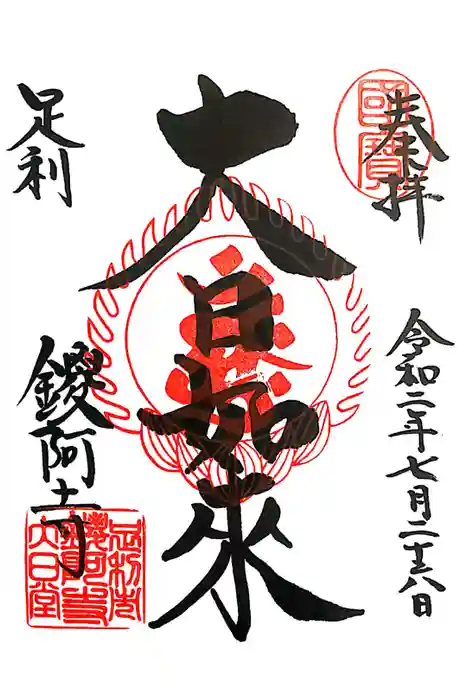 奉拝
國寶
令和二年七月二十八日
大日如来
足利
鑁阿寺
足利市
鑁阿寺
大日堂